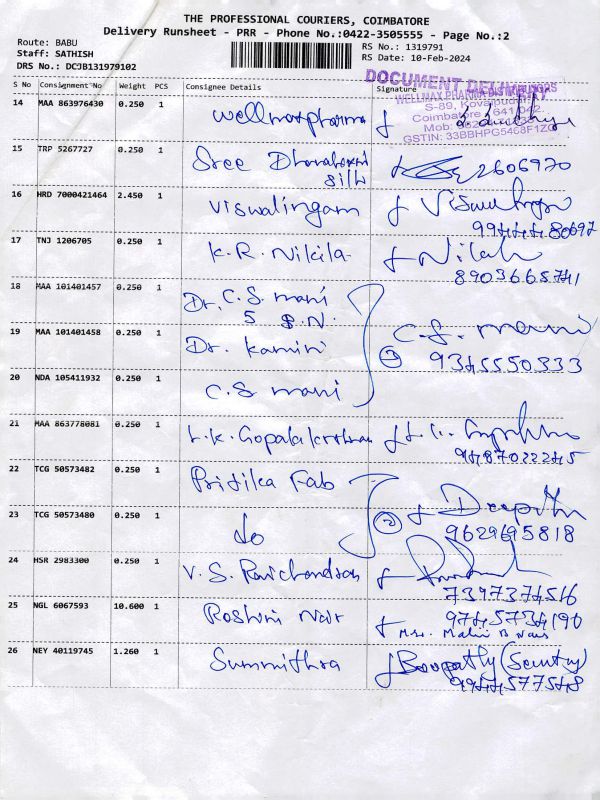 THE PROFESSIONAL COURIERS, COIMBATORE
Delivery Runsheet - PRR - Phone No.:0422-3505555 - Page No.:2
Route: BABU
Staff: SATHISH
DRS No.: DCJB131979102
RS No.: 1319791
RS Date: 10-Feb-2024
S No Consignment No Weight PCS Consignee Details Signature
DOCUMENT DELIVERY
S-89, Kovaipudur
Coimbatore 641 042.
Mob:
GSTIN: 33BBHPG5468F1ZQ
14 MAA 863976430 0.250 1 Wellmaxpharma
15 TRP 5267727 0.250 1 Sree 2606970
silk
16 HRD 7000421464 2.450 1 Viswalingam
17 TNJ 1206705 0.250 1 K.R. Nikila
8903665741
18 MAA 101401457 0.250 1 Dr. C.S. mani
19 MAA 101401458 0.250 1 Dr. Kamini C.S. mani
9345550333
20 NDA 105411932 0.250 1 C.S mani
21 MAA 863778081 0.250 1 L.K. Gopalakrishnan
22 TCG 50573482 0.250 1 Pritika Fab
23 TCG 50573480 0.250 1 do 2 Deepthi
9629695818
24 HSR 2983300 0.250 1 V. S. Ravichandran
7397374516
25 NGL 6067593 10.600 1 Roshni Nair 9745734190
Mrs. Malini B Nair
26 NEY 40119745 1.260 1 Summithra Boopathy (Security)
9944577548